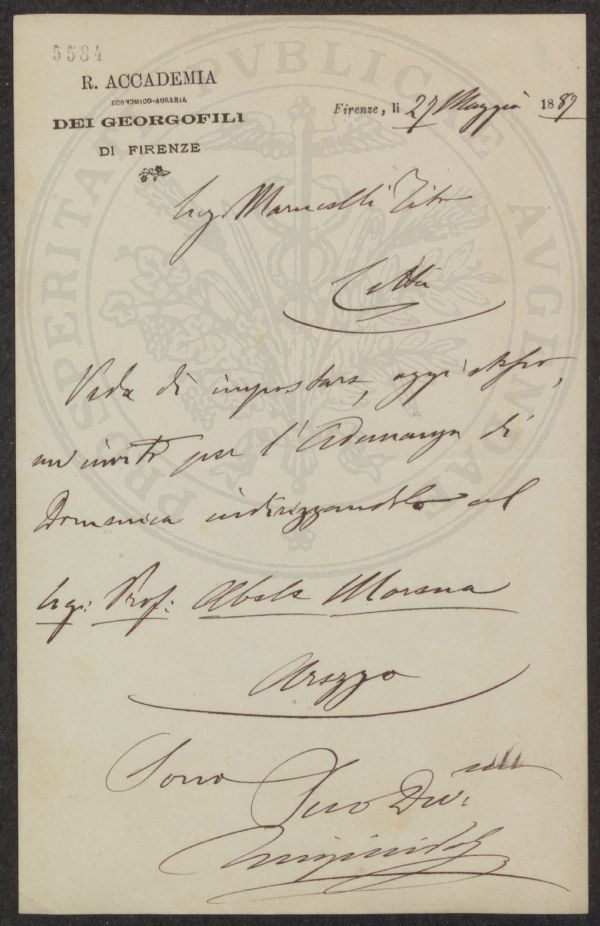 5584
R. ACCADEMIA
ECONOMICO-AGRARIA
DEI GEORGOFILI
DI FIRENZE
Firenze, li 27 Maggio 1887
Sig. Marucelli Tito
Città
Veda di impostare, oggi stesso,
un invito per l'Adunanza di
Domenica indirizzandolo al
Sig: Prof: Abele Morena
Arezzo
Sono
Suo Dev:
PROSPERITATI PVBLICAE AVGENDAE